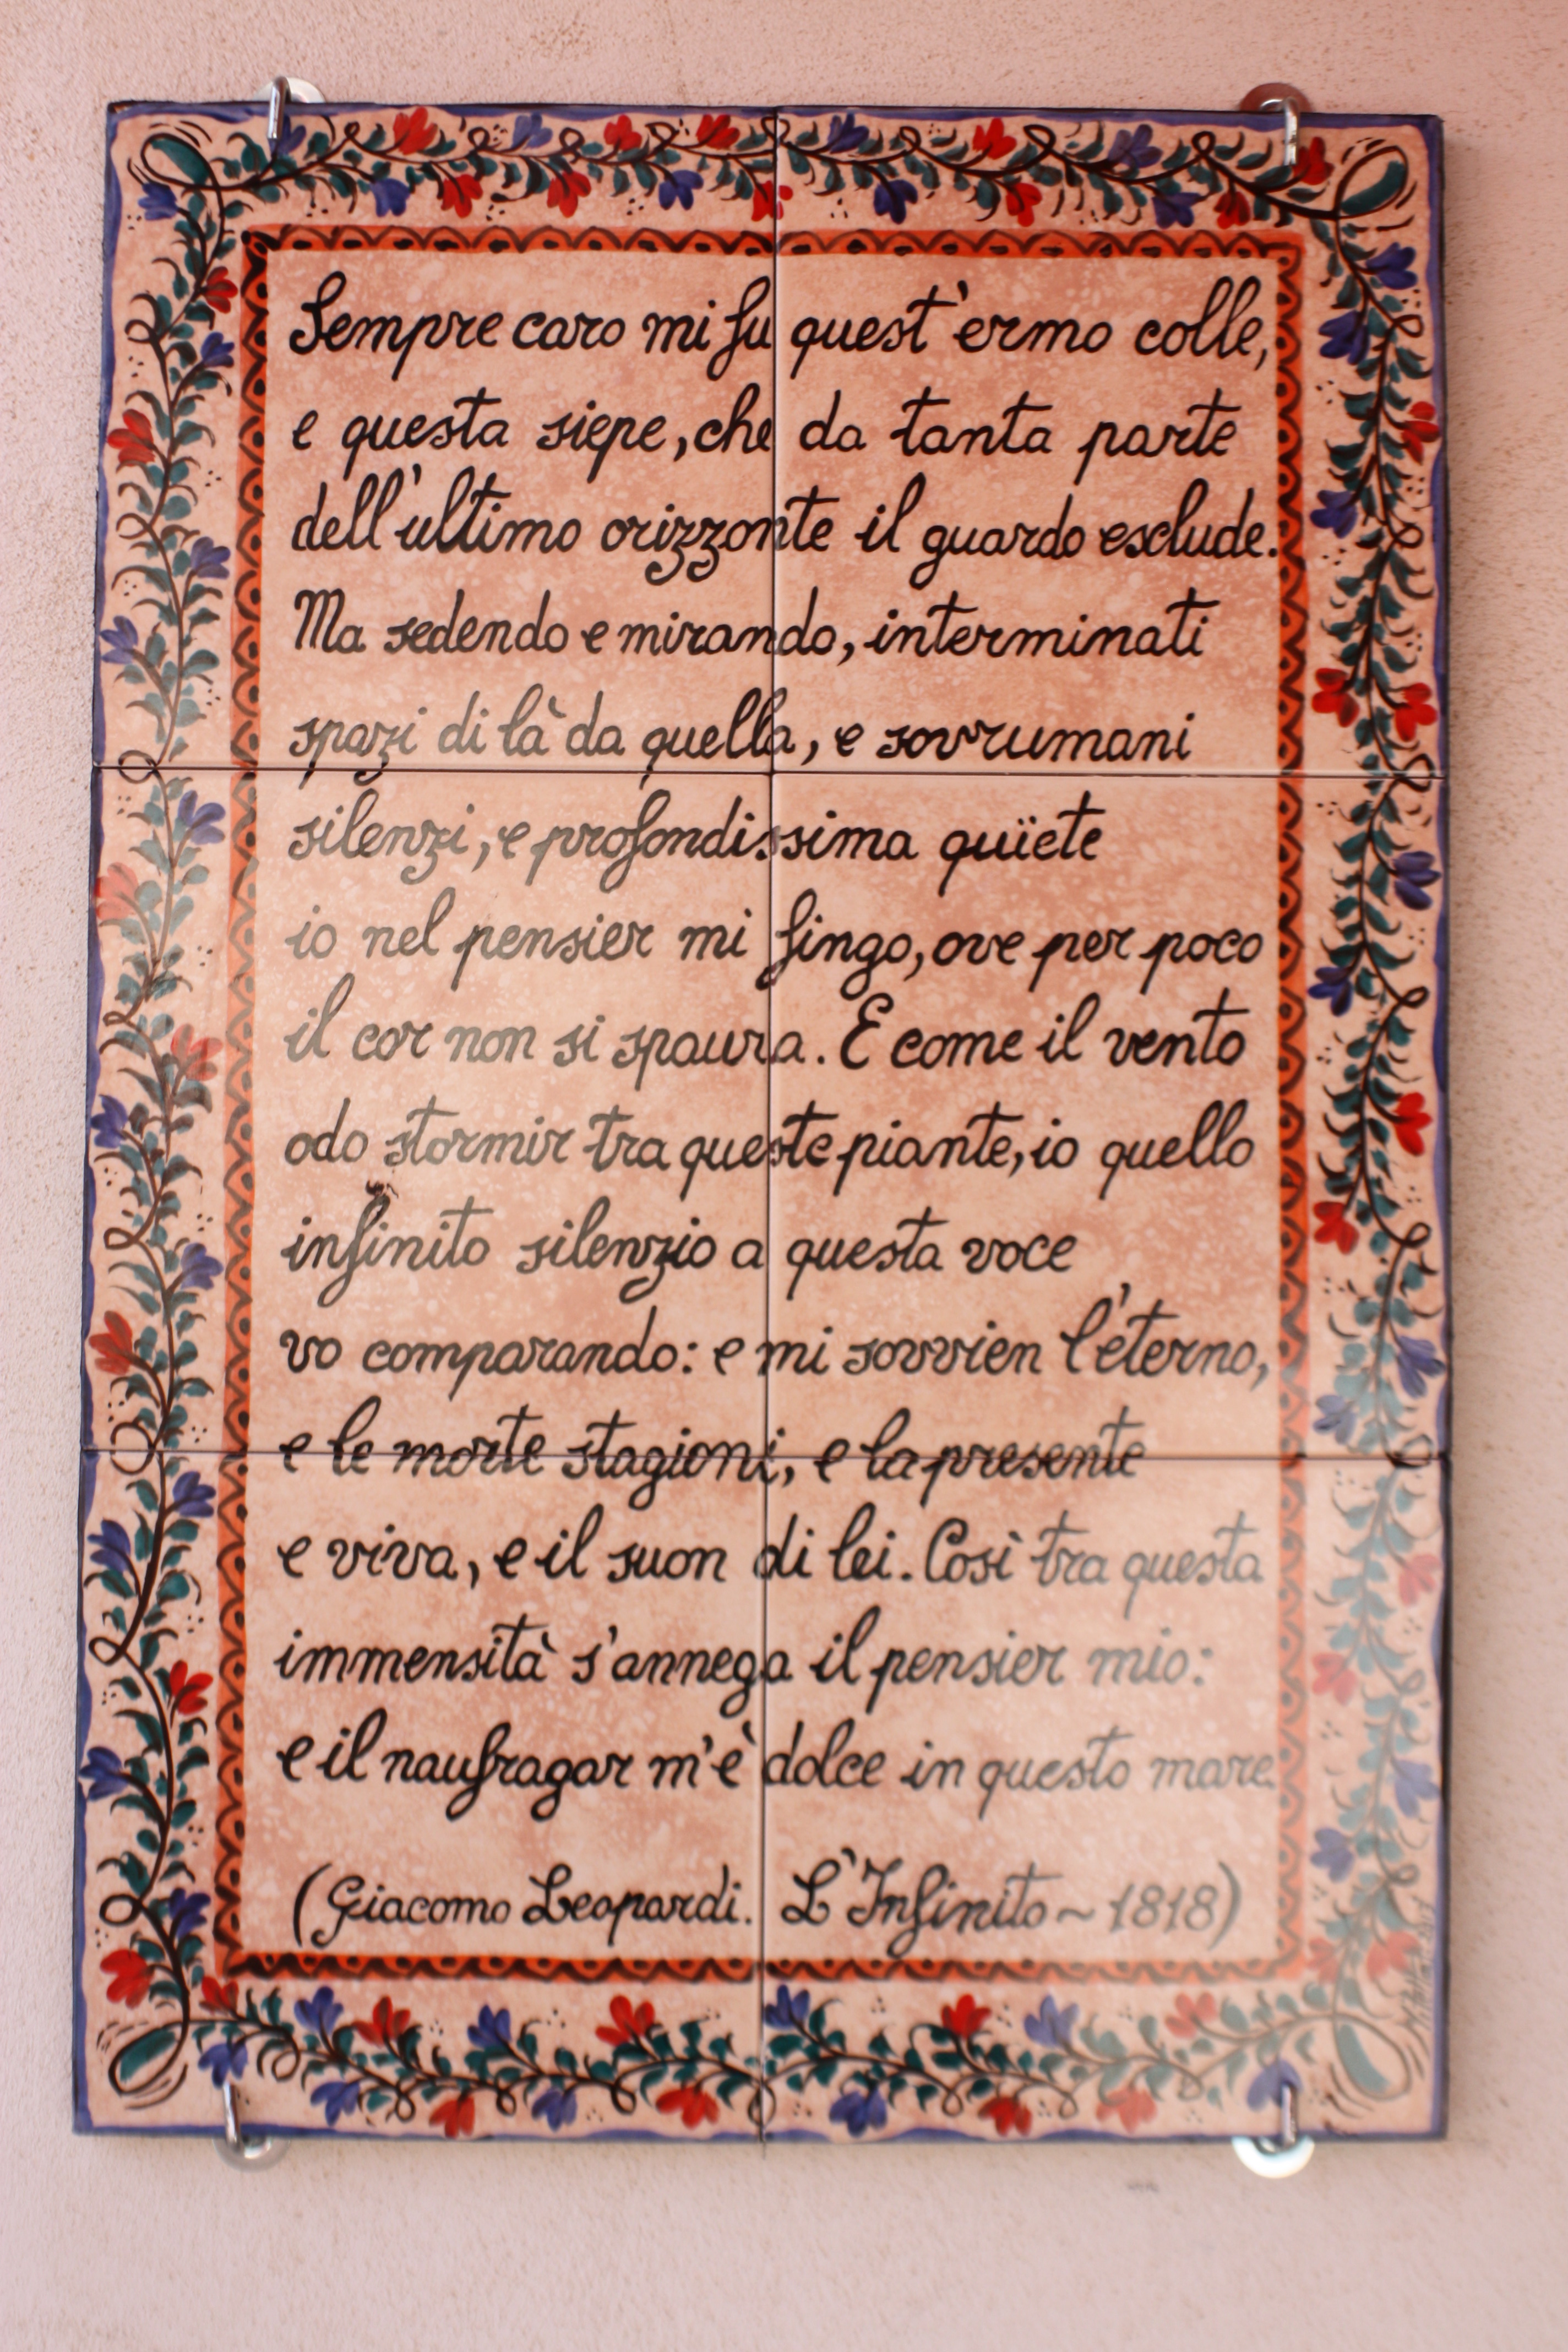 Sempre caro mi fu quest'ermo colle,
e questa siepe, che da tanta parte
dell'ultimo orizzonte il guardo esclude.
Ma sedendo e mirando, interminati
spazi di là da quella, e sovrumani
silenzi, e profondissima quïete
io nel pensier mi fingo, ove per poco
il cor non si spaura. E come il vento
odo stormir tra queste piante, io quello
infinito silenzio a questa voce
vo comparando: e mi sovvien l'eterno,
e le morte stagioni, e la presente
e viva, e il suon di lei. Così tra questa
immensità s'annega il pensier mio:
e il naufragar m'è dolce in questo mare.
(Giacomo Leopardi. L'Infinito ~ 1818)